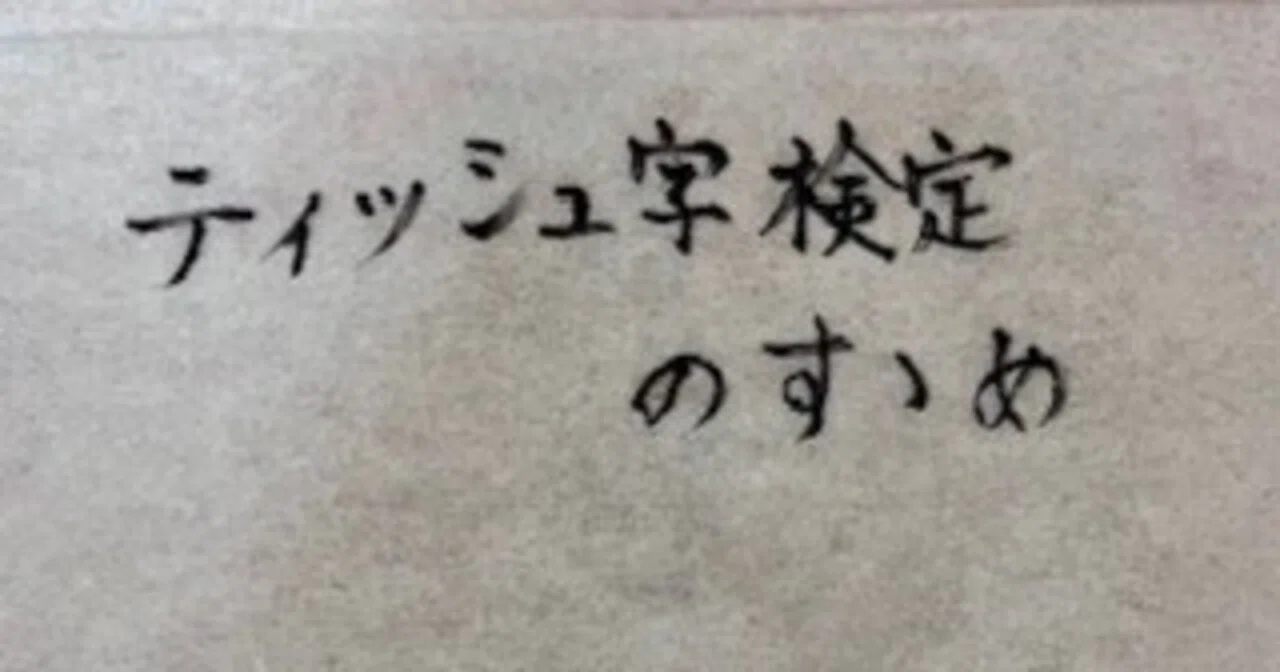 ティッシュ字検定
のすゝめ